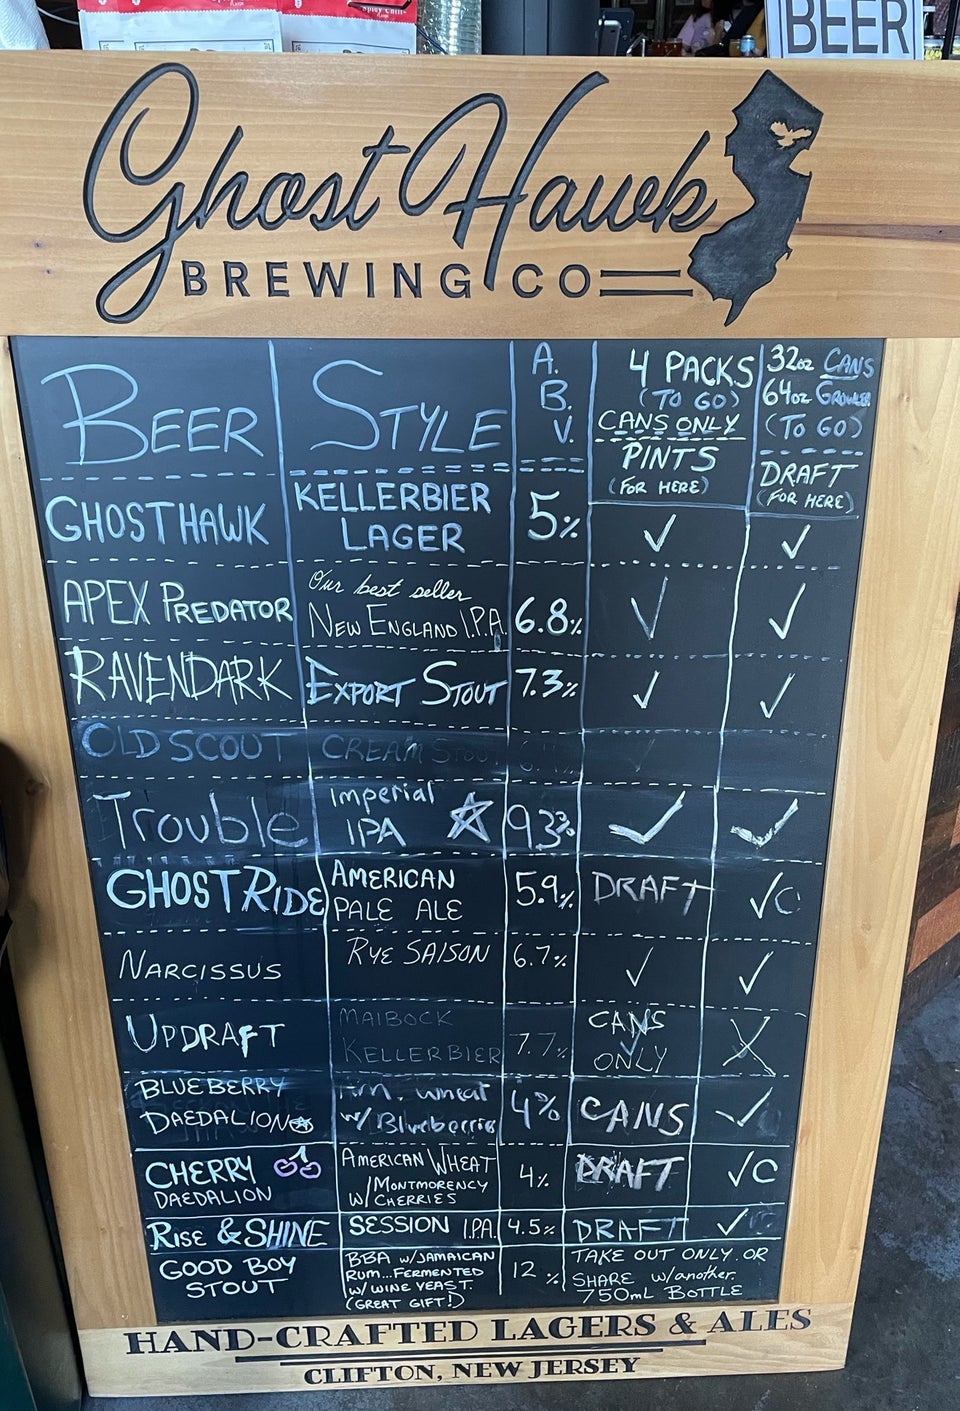 BEER
Ghost Hawk
BREWING CO
BEER
STYLE
A.
B.
V.
4 PACKS
(TO GO)
CANS ONLY
PINTS
(FOR HERE)
32oz CANS
64oz GROWLER
(TO GO)
DRAFT
(FOR HERE)
GHOSTHAWK
KELLERBIER
LAGER
5%
✓
✓
APEX PREDATOR
Our best seller
NEW ENGLAND I.P.A.
6.8%
✓
✓
RAVENDARK
EXPORT STOUT
7.3%
✓
✓
OLD SCOUT
CREAM STOUT
Trouble
Imperial
IPA
9.3%
✓
✓
GHOST RIDE
AMERICAN
PALE ALE
5.9%
DRAFT
✓C
NARCISSUS
RYE SAISON
6.7%
✓
✓
UPDRAFT
MAIBOCK
KELLERBIER
7.7%
CANS
ONLY
X
BLUEBERRY
DAEDALION
Am. wheat
w/ Blueberries
4%
CANS
✓
CHERRY
DAEDALION
AMERICAN WHEAT
W/ MONTMORENCY
CHERRIES
4%
DRAFT
✓C
RISE & SHINE
SESSION I.P.A.
4.5%
DRAFT
✓
GOOD BOY
STOUT
BBA w/JAMAICAN
RUM...FERMENTED
W/ WINE YEAST.
(GREAT GIFT!)
12 %
TAKE OUT ONLY OR
SHARE w/another.
750mL BOTTLE
HAND-CRAFTED LAGERS & ALES
CLIFTON, NEW JERSEY